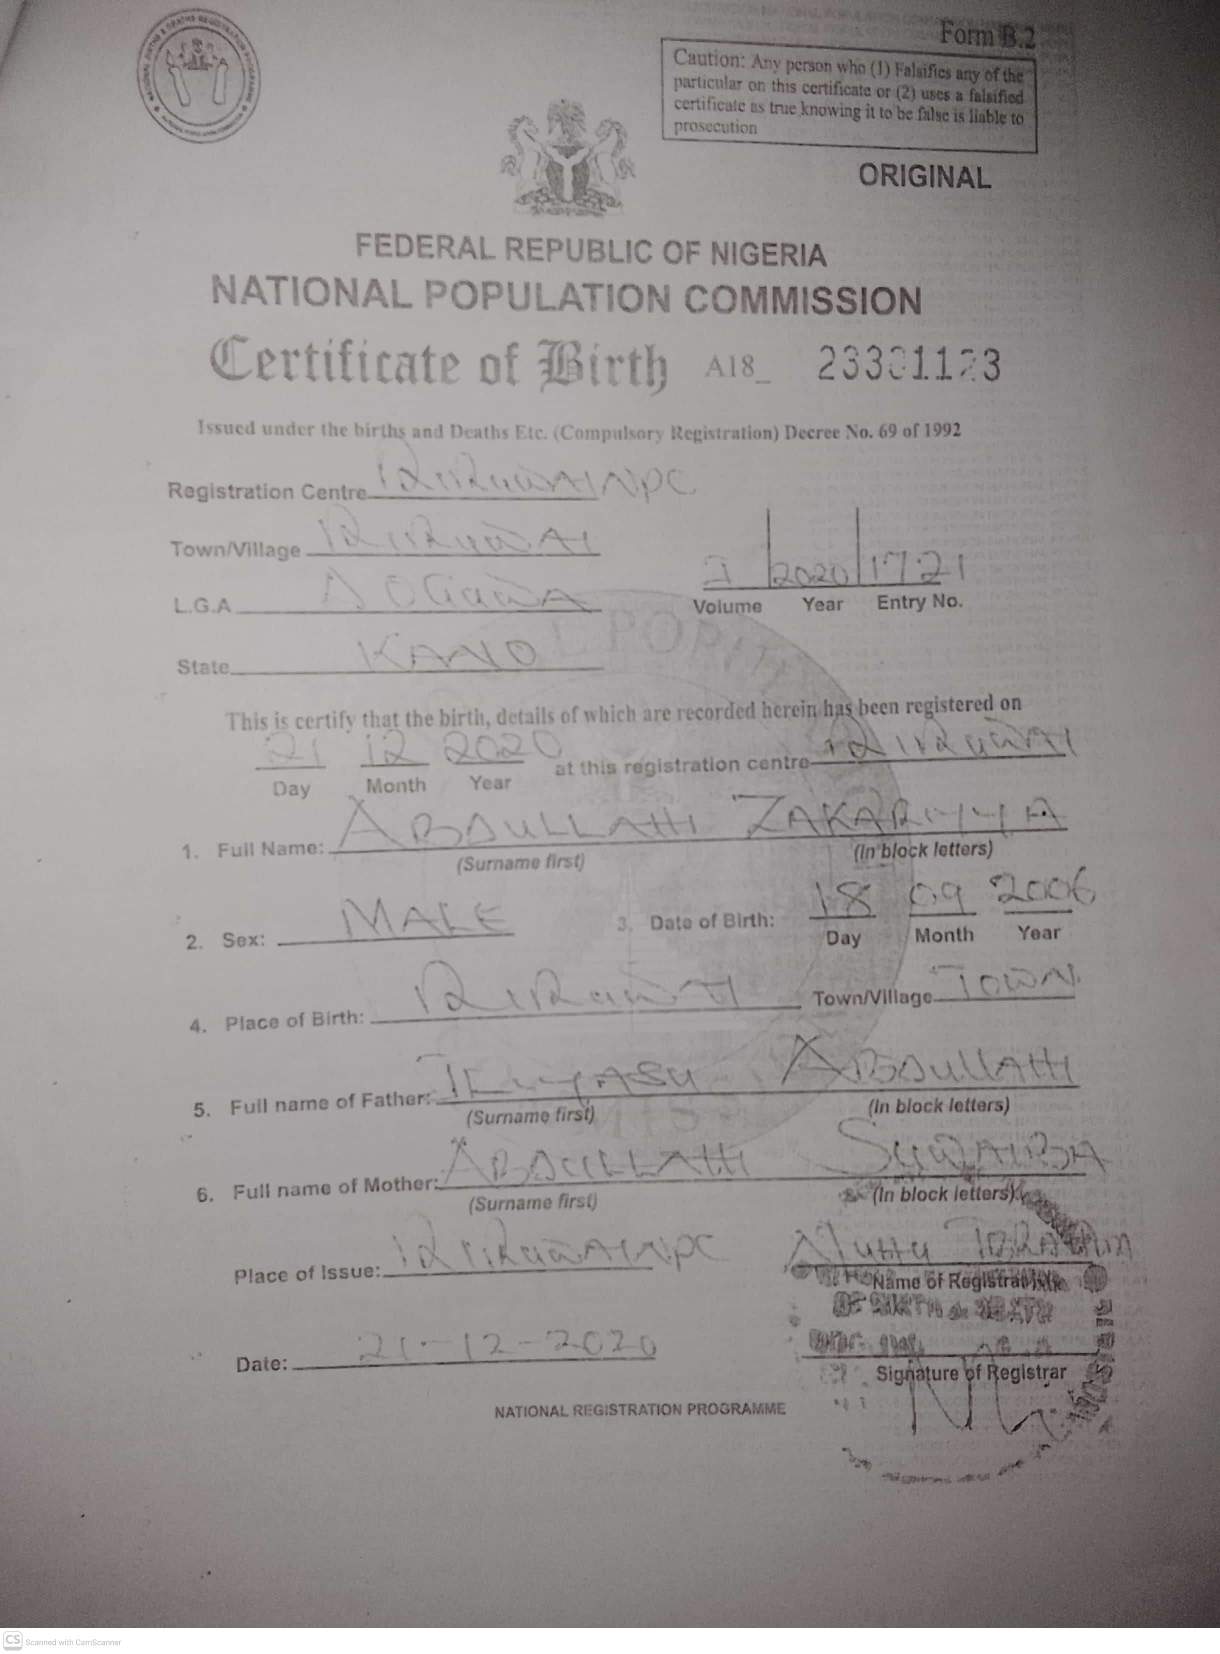 Form B.2
Caution: Any person who (1) Falsifies any of the
particular on this certificate or (2) uses a falsified
certificate as true knowing it to be false is liable to
prosecution
ORIGINAL
FEDERAL REPUBLIC OF NIGERIA
NATIONAL POPULATION COMMISSION
Certificate of Birth A18_
Issued under the births and Deaths Etc. (Compulsory Registration) Decree No. 69 of 1992
Registration Centre RIRUWAI NPC
Town/Village RIRUWAI
L.G.A DOGUWA
2020 1721
Volume Year Entry No.
State KANO
This is certify that the birth, details of which are recorded herein has been registered on
21 12 2020 at this registration centre RIRUWAI
Day Month Year
1. Full Name: ABDULLAHI ZAKARIYYA
(Surname first) (In block letters)
2. Sex: MALE 3. Date of Birth: 18 09 2006
Day Month Year
4. Place of Birth: RIRUWAI Town/Village TOWN
5. Full name of Father: ILIYASU ABDULLAHI
(Surname first) (In block letters)
6. Full name of Mother: ABDULLAHI SUWAIBA
(Surname first) (In block letters)
Place of Issue: RIRUWAI NPC NUHU IBRAHIM
Name of Registrar
Date: 21-12-2020
Signature of Registrar
NATIONAL REGISTRATION PROGRAMME
CS Scanned with CamScanner